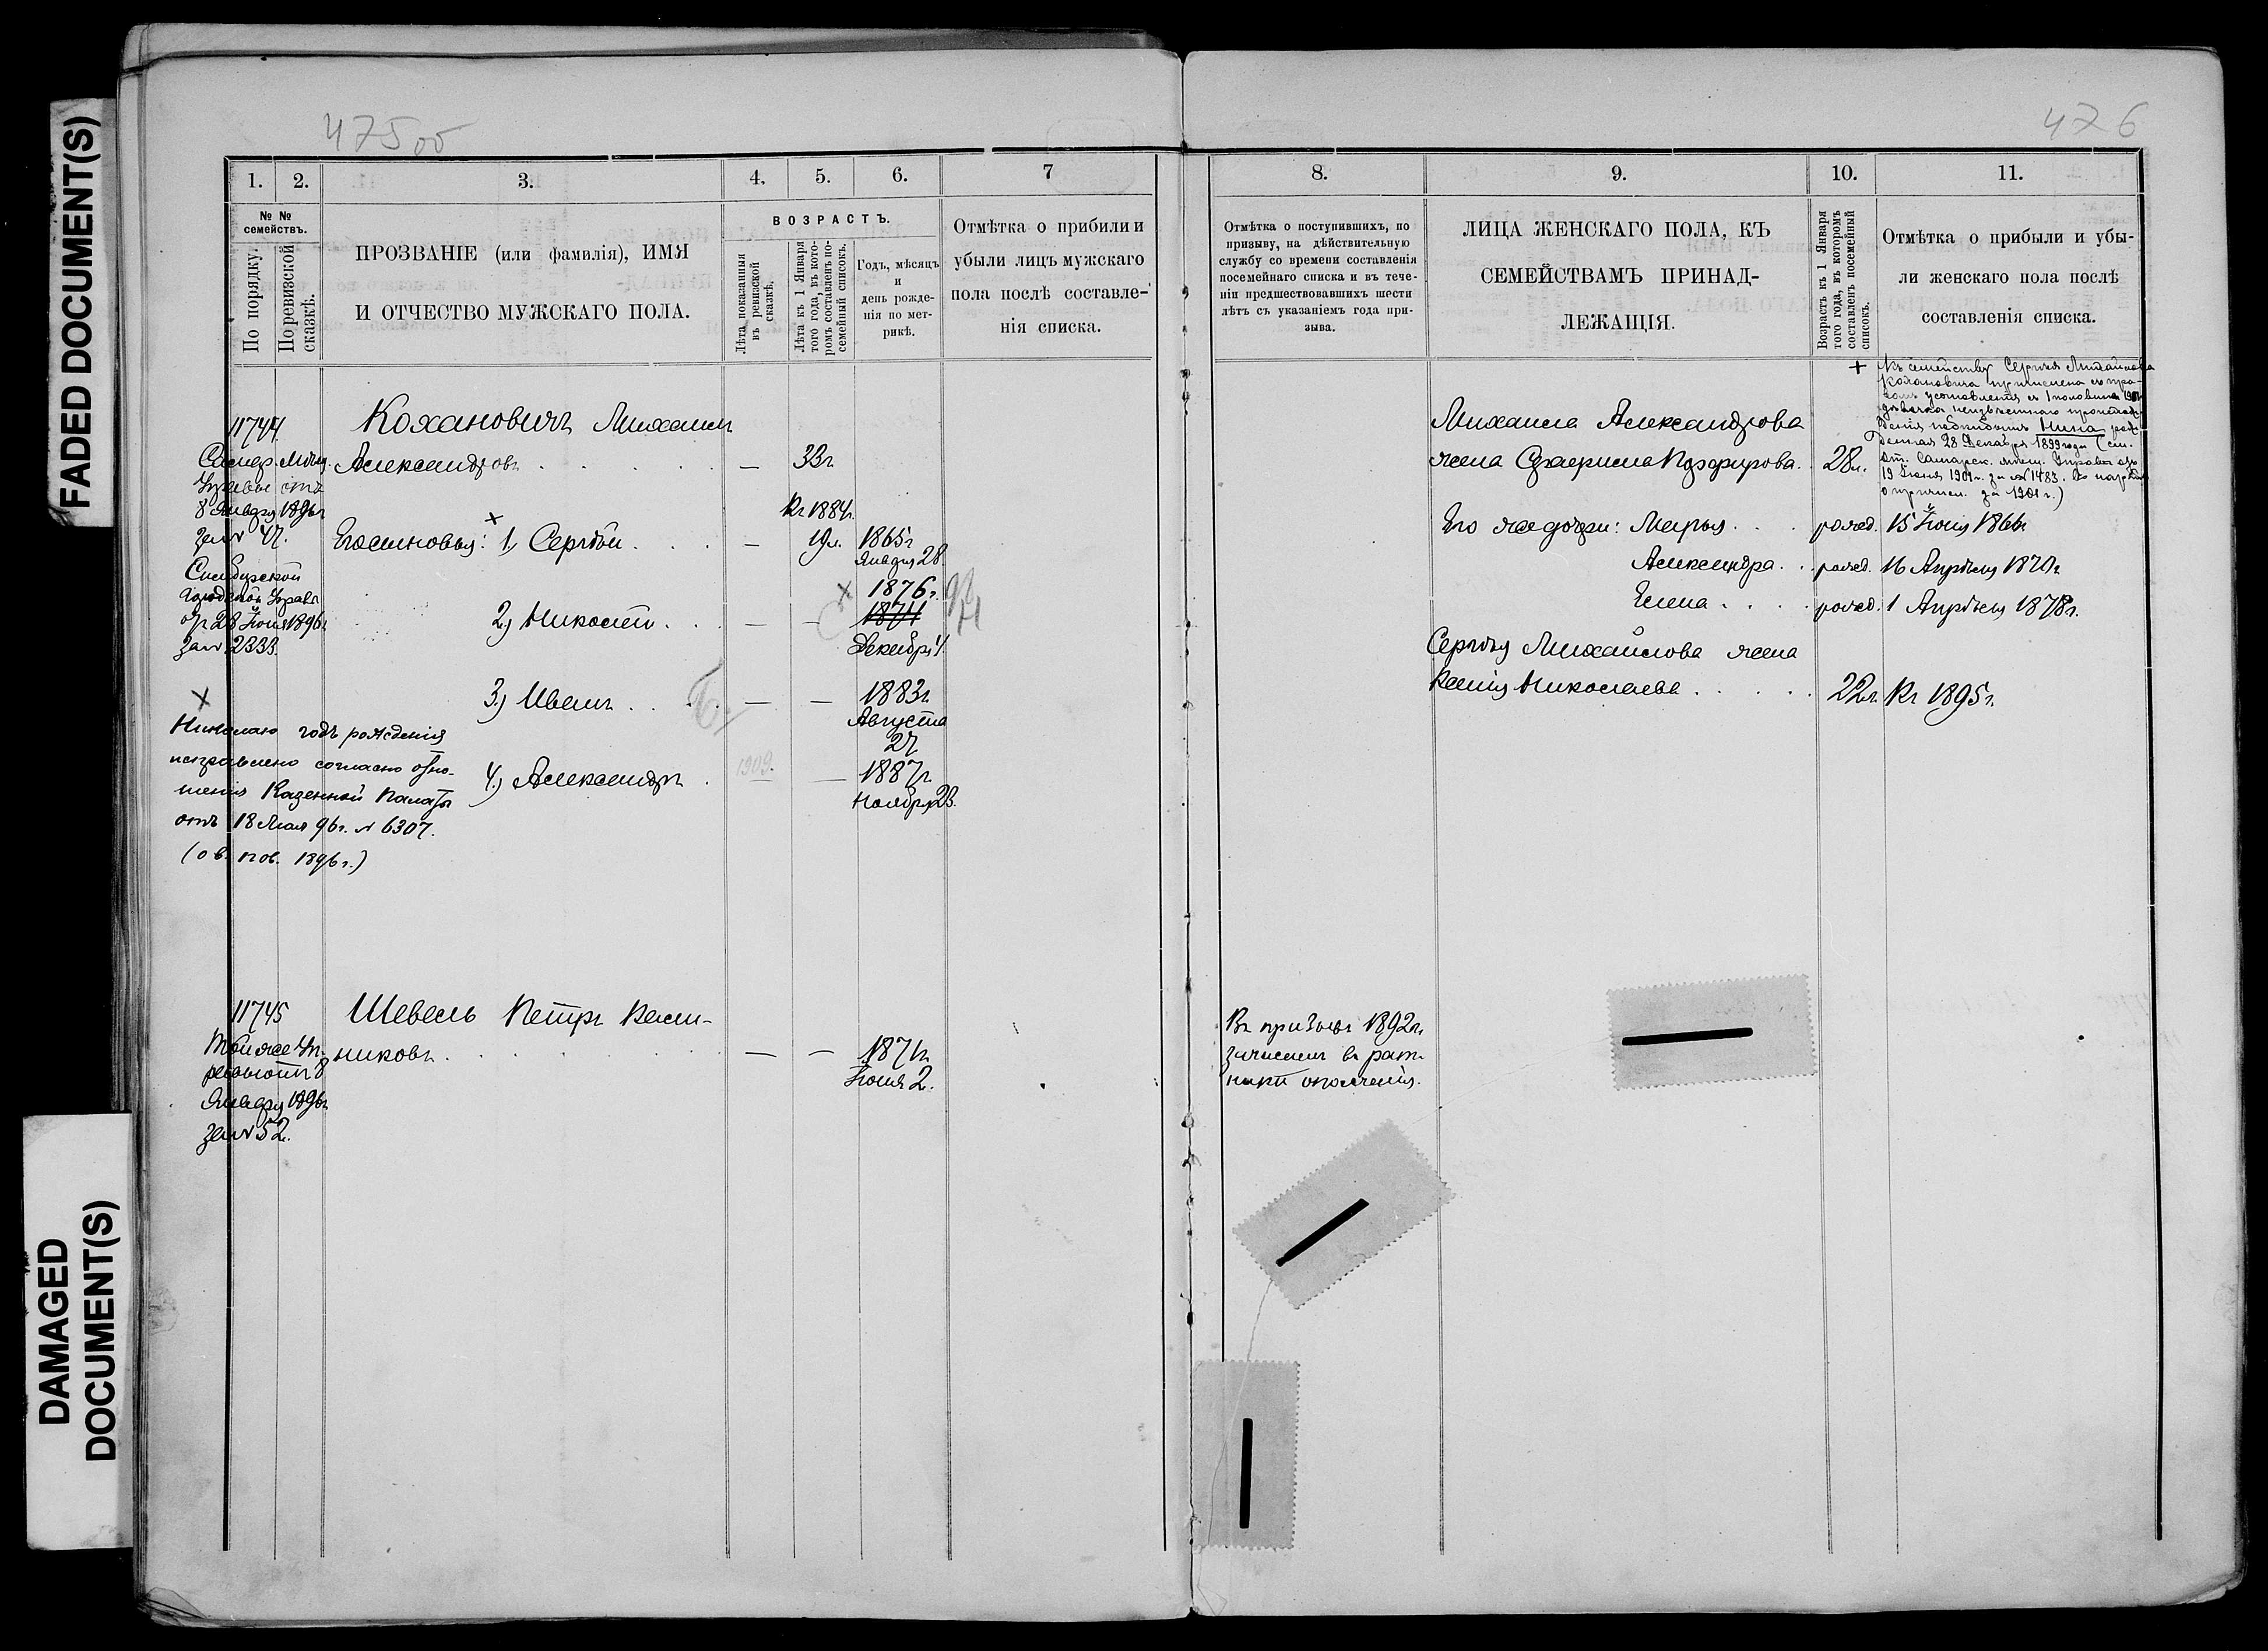 FADED DOCUMENT(S)
DAMAGED
DOCUMENT(S)
475 об
1. 2. 3. 4. 5. 6. 7
№ №
семействъ.
По порядку.
По ревизской
сказкѣ.
ПРОЗВАНІЕ (или фамилія), ИМЯ
И ОТЧЕСТВО МУЖСКАГО ПОЛА.
ВОЗРАСТЪ.
Лѣта показанныя
въ ревизской
сказкѣ.
Лѣта къ 1 Января
того года, въ кото-
ромъ составленъ по-
семейный списокъ.
Годъ, мѣсяцъ
и
день рожде-
нія по мет-
рикѣ.
Отмѣтка о прибыли и
убыли лицъ мужскаго
пола послѣ составле-
нія списка.
11744
Самар. Мѣщ.
Управы отъ
8 Января 1896 г.
за № 47.
Симбирской
Городской Управы
от 28 Іюня 1896 г.
за № 2333.
Кохановичъ Михаилъ
Александровъ — 33 г.
Къ 1884 г.
Его сыновья: 1, Сергѣй — 19 л. 1865 г.
Января 28.
2, Николай — — 1876 г.
1874
Декабря 4.
3, Иванъ — — 1883 г.
Августа
27
4, Александръ 1909. — 1887 г.
Ноября 23.
Николаю годъ рожденія
исправлено согласно отно-
шенія Казенной Палаты
отъ 18 Мая 96 г. № 6307.
1896 г.)
11745
Шевель Петръ
Той же Уп-
8
Января 1896 г.
за № 52.
никовъ — — 1871 г.
Іюня 2.
476
8. 9. 10. 11.
Отмѣтка о поступившихъ, по
призыву, на дѣйствительную
службу со времени составленія
посемейнаго списка и въ тече-
ніи предшествовавшихъ шести
лѣтъ съ указаніемъ года при-
зыва.
ЛИЦА ЖЕНСКАГО ПОЛА, КЪ
СЕМЕЙСТВАМЪ ПРИНАД-
ЛЕЖАЩІЯ.
Возрастъ къ 1 Января
того года, въ которомъ
составленъ посемейный
списокъ.
Отмѣтка о прибыли и убы-
ли женскаго пола послѣ
составленія списка.
+ Къ семейству Сергѣя Михайлова
Кохановича причислена
1 половины 1901
дѣвочка неизвѣстнаго происхож-
денія подкидышъ Нина рож-
денная 28 Декабря 1899 года (см.
от. Самарск. мѣщ. Управы отъ
19 Іюня 1901 г. за № 1483.
о причисл. за 1901 г.)
Михаила Александрова
жена Порфирова. 28 л.
Его же дочери: Марья рожд. 15 Іюня 1866 г.
Александра рожд. 16 Апрѣля 1870 г.
Елена рожд. 1 Апрѣля 1878 г.
Сергѣя Михайлова жена
Ксенія Николаева 22 л. Къ 1895 г.
Въ призывъ 1892 г.
зачисленъ въ рат-
ники ополченія.